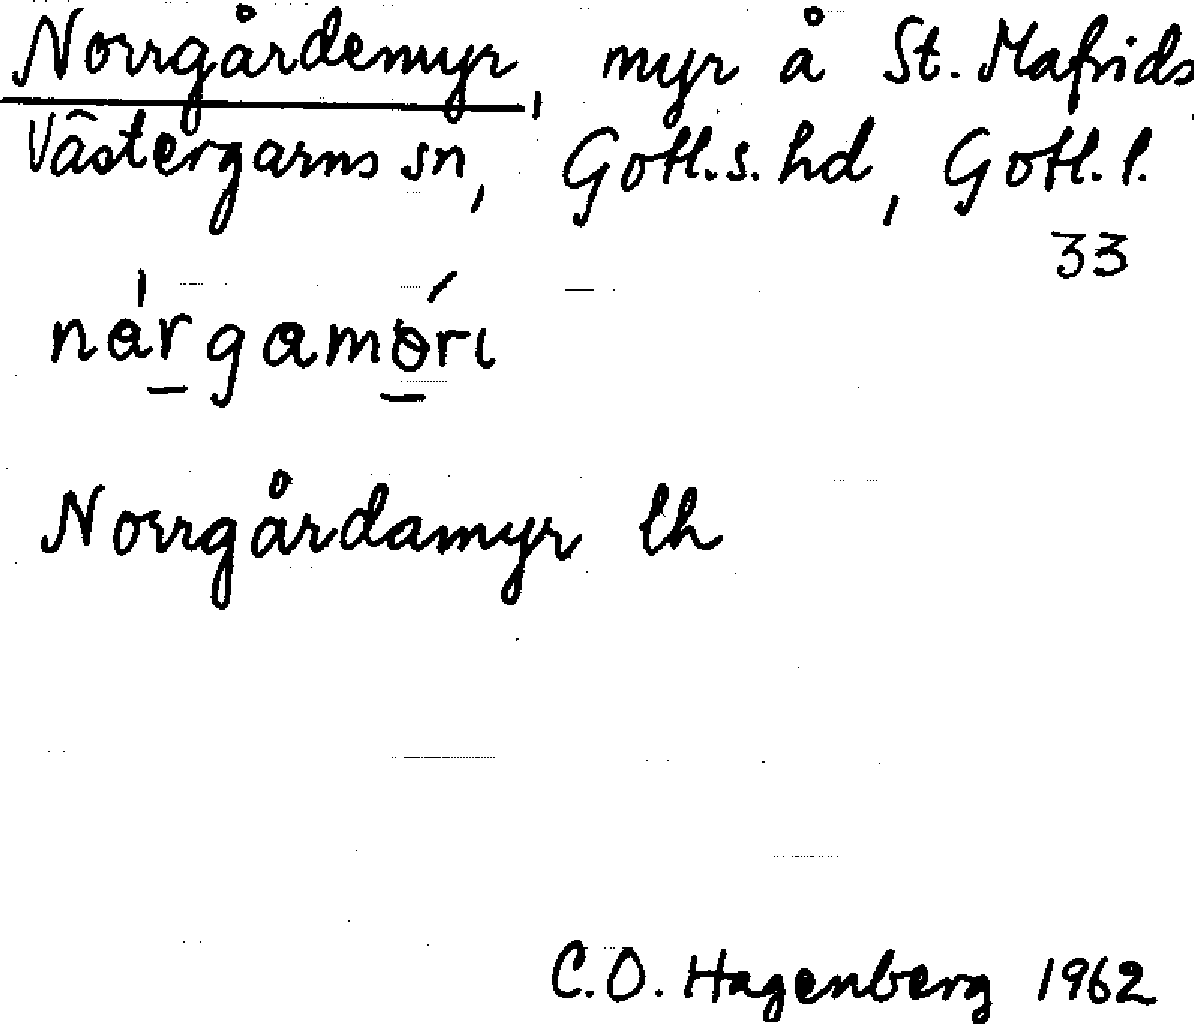 Norrgårdemyr, myr å St. Mafrids
Västergarns sn, Gotl.s. hd, Gotl. l.
33
Norrgårdamyr lh
C.O. Hagenberg 1962